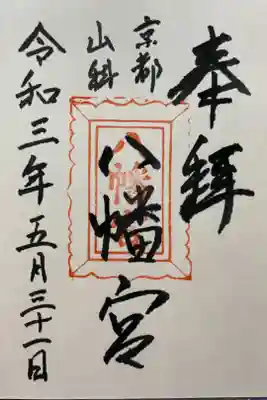 奉拝
京都
山科
八幡宮
令和三年五月三十一日